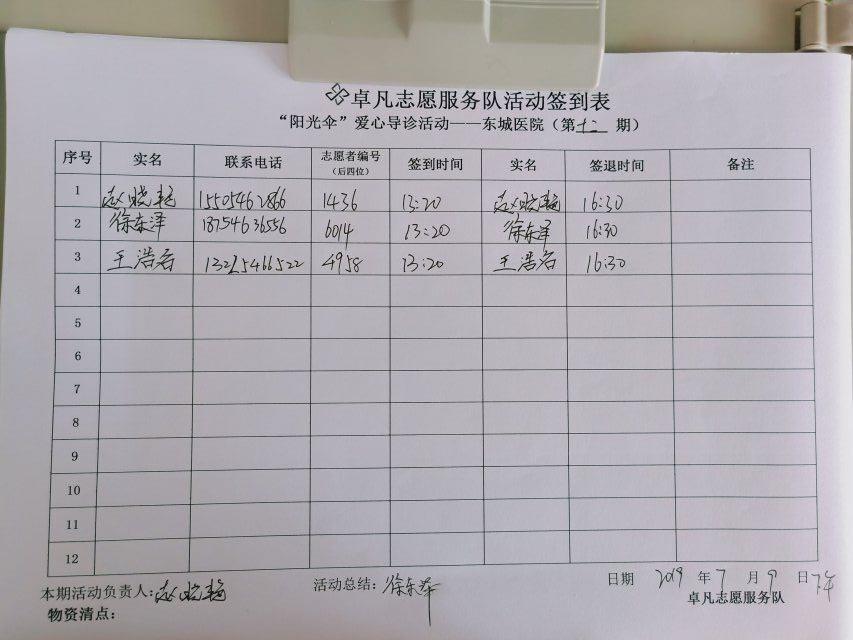 卓凡志愿服务队活动签到表
“阳光伞”爱心导诊活动——东城医院（第十二期）
序号 实名 联系电话 志愿者编号（后四位） 签到时间 实名 签退时间 备注
1 赵晓艳 1505462866 1436 13:20 赵晓艳 16:30
2 徐东泽 18754636556 6014 13:20 徐东泽 16:30
3 王浩名 13215466522 4958 13:20 王浩名 16:30
4
5
6
7
8
9
10
11
12
本期活动负责人:赵晓艳 活动总结：徐东泽 日期 2019 年 7 月 9 日下午
物资清点： 卓凡志愿服务队